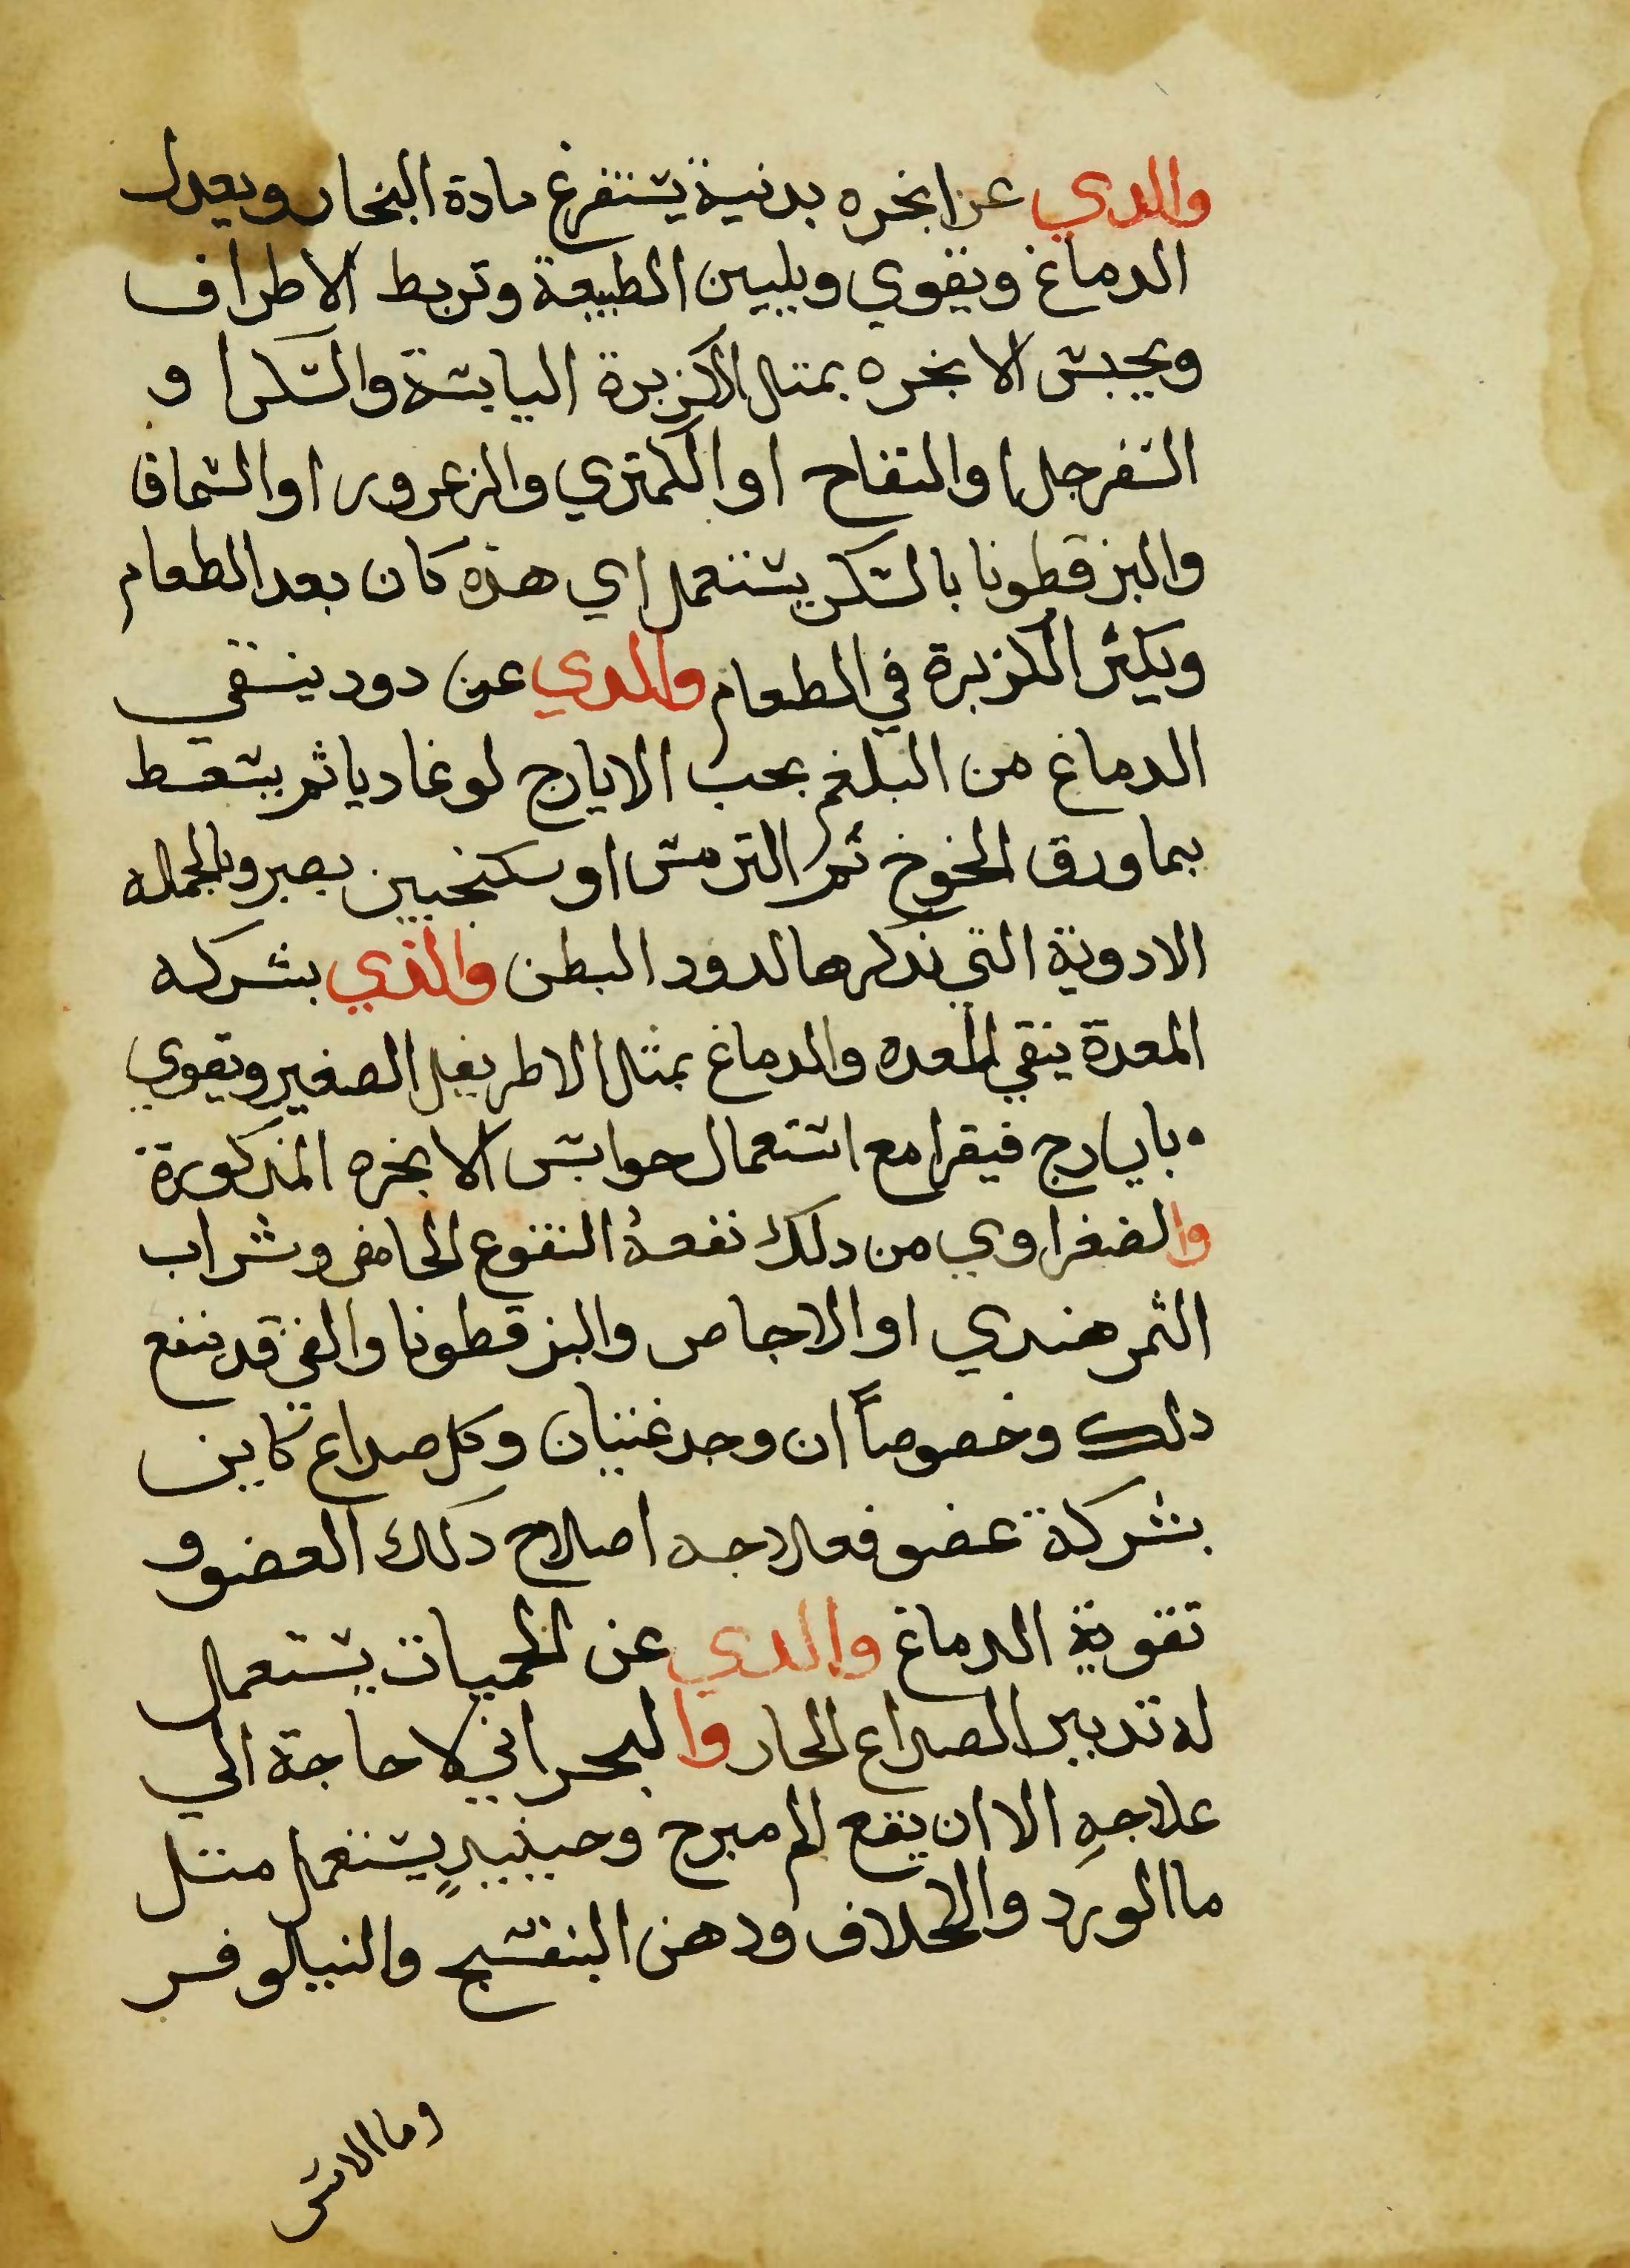 والدي عن ابخره بدنية يستفرغ مادة البخار ويعدل
الدماغ ويقوي ويليين الطبيعة وتربط الاطراف
ويحبس الابخره بمتل الكزبرة اليابسة والسكر او
السفرجل او التفاح او الكمتري والزعرور او السماق
والبزقطونا بالسكر يستعمل اي هذه كان بعد الطعام
ويكثر الكزبرة في الطعام والدي عن دود ينقي
الدماغ من البلغم بحب الايارج لوغاديا ثم يسعط
بما ورق الخوخ ثم الترمس او سكنجبين بصبر وبالجمله
الادوية التي نذكرها لدود البطن والذي بشركه
المعدة ينقي المعده والدماغ بمثل الاطريفل الصغير وتقوي
بايارج فيقرا مع استعمال حوابس الابخره المذكورة
والصفراوي من دلك نفعه النقوع الحامض وشراب
الثمر هندي او الاجاص والبزقطونا والقي قد ينفع
دلك وخصوصاً ان وجد غثيان وكل صداع كاين
بشركة عضو فعلاجه اصلاح دلك العضو و
تقوية الدماغ والدي عن الحميات يستعمل
له تدبير الصداع الحار والبحراني لا حاجة الي
علاجهِ الا ان يقع الم مبرح وحينيدٍ يستعمل متل
ما الورد والخلاف ودهن البنفسج والنيلوفر
وما الاس